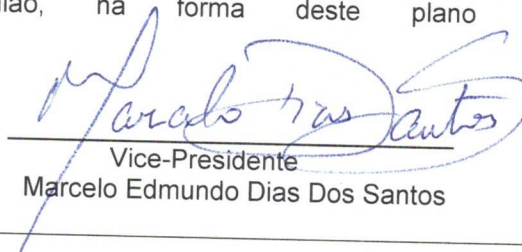 na forma deste plano
Marcelo Dias Santos
Vice-Presidente
Marcelo Edmundo Dias Dos Santos